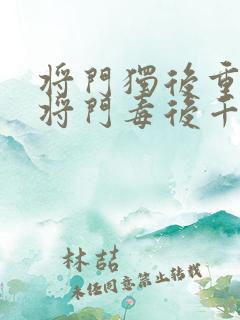 將門獨後重
將門毒後千
林喆
未经同意禁止转载